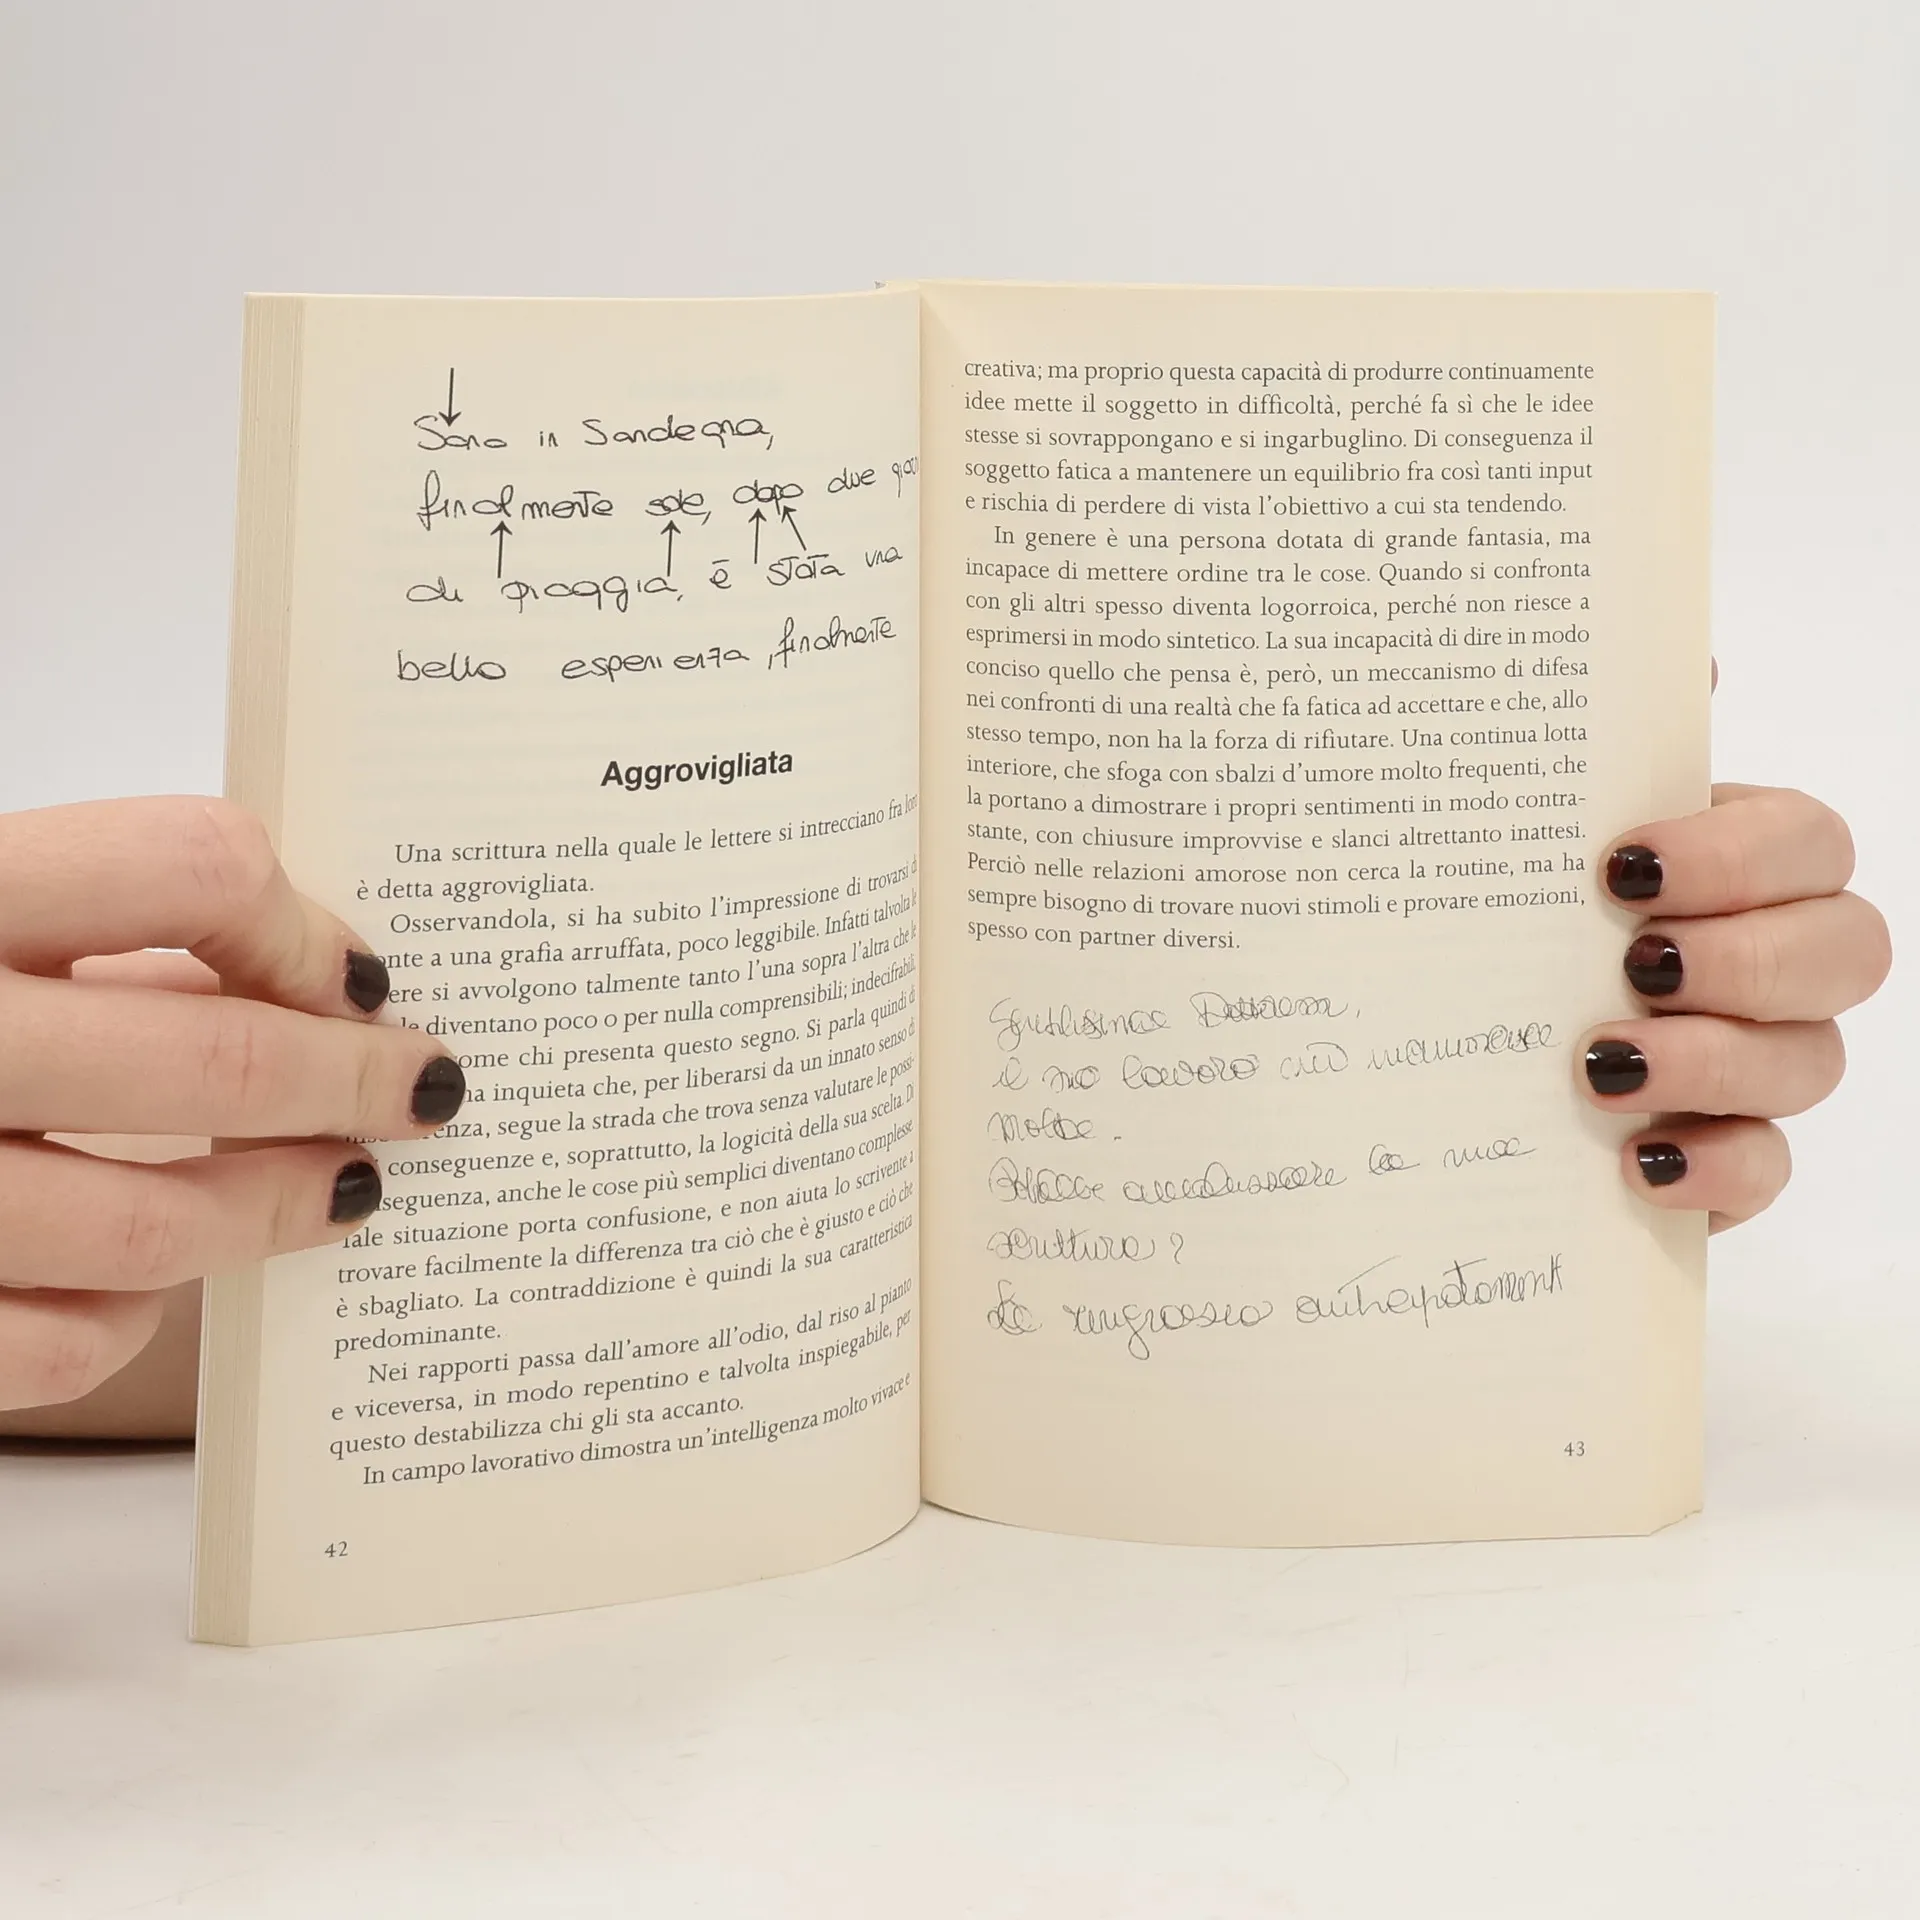 Sono in Sardegna,
finalmente sole, dopo due
di pioggia, è stata una
bella esperienza, finalmente
Aggrovigliata
Una scrittura nella quale le lettere si intrecciano fra loro
è detta aggrovigliata.
Osservandola, si ha subito l'impressione di trovarsi di
a una grafia arruffata, poco leggibile. Infatti talvolta le
si avvolgono talmente tanto l'una sopra l'altra che le
diventano poco o per nulla comprensibili; indecifrabili,
come chi presenta questo segno. Si parla quindi di
inquieta che, per liberarsi da un innato senso di
segue la strada che trova senza valutare le possi-
conseguenze e, soprattutto, la logicità della sua scelta. Di
anche le cose più semplici diventano complesse
Tale situazione porta confusione, e non aiuta lo scrivente a
trovare facilmente la differenza tra ciò che è giusto e ciò che
è sbagliato. La contraddizione è quindi la sua caratteristica
predominante.
Nei rapporti passa dall'amore all'odio, dal riso al pianto
e viceversa, in modo repentino e talvolta inspiegabile, per
questo destabilizza chi gli sta accanto.
In campo lavorativo dimostra un'intelligenza molto vivace e
42
creativa; ma proprio questa capacità di produrre continuamente
idee mette il soggetto in difficoltà, perché fa sì che le idee
stesse si sovrappongano e si ingarbuglino. Di conseguenza il
soggetto fatica a mantenere un equilibrio fra così tanti input
e rischia di perdere di vista l'obiettivo a cui sta tendendo.
In genere è una persona dotata di grande fantasia, ma
incapace di mettere ordine tra le cose. Quando si confronta
con gli altri spesso diventa logorroica, perché non riesce a
esprimersi in modo sintetico. La sua incapacità di dire in modo
conciso quello che pensa è, però, un meccanismo di difesa
nei confronti di una realtà che fa fatica ad accettare e che, allo
stesso tempo, non ha la forza di rifiutare. Una continua lotta
interiore, che sfoga con sbalzi d'umore molto frequenti, che
la portano a dimostrare i propri sentimenti in modo contra-
stante, con chiusure improvvise e slanci altrettanto inattesi.
Perciò nelle relazioni amorose non cerca la routine, ma ha
sempre bisogno di trovare nuovi stimoli e provare emozioni,
spesso con partner diversi.
Gentilissima Dottoressa,
il suo lavoro mi incuriosisce
molto.
analizzare la mia
scrittura?
La ringrazio anticipatamente
43